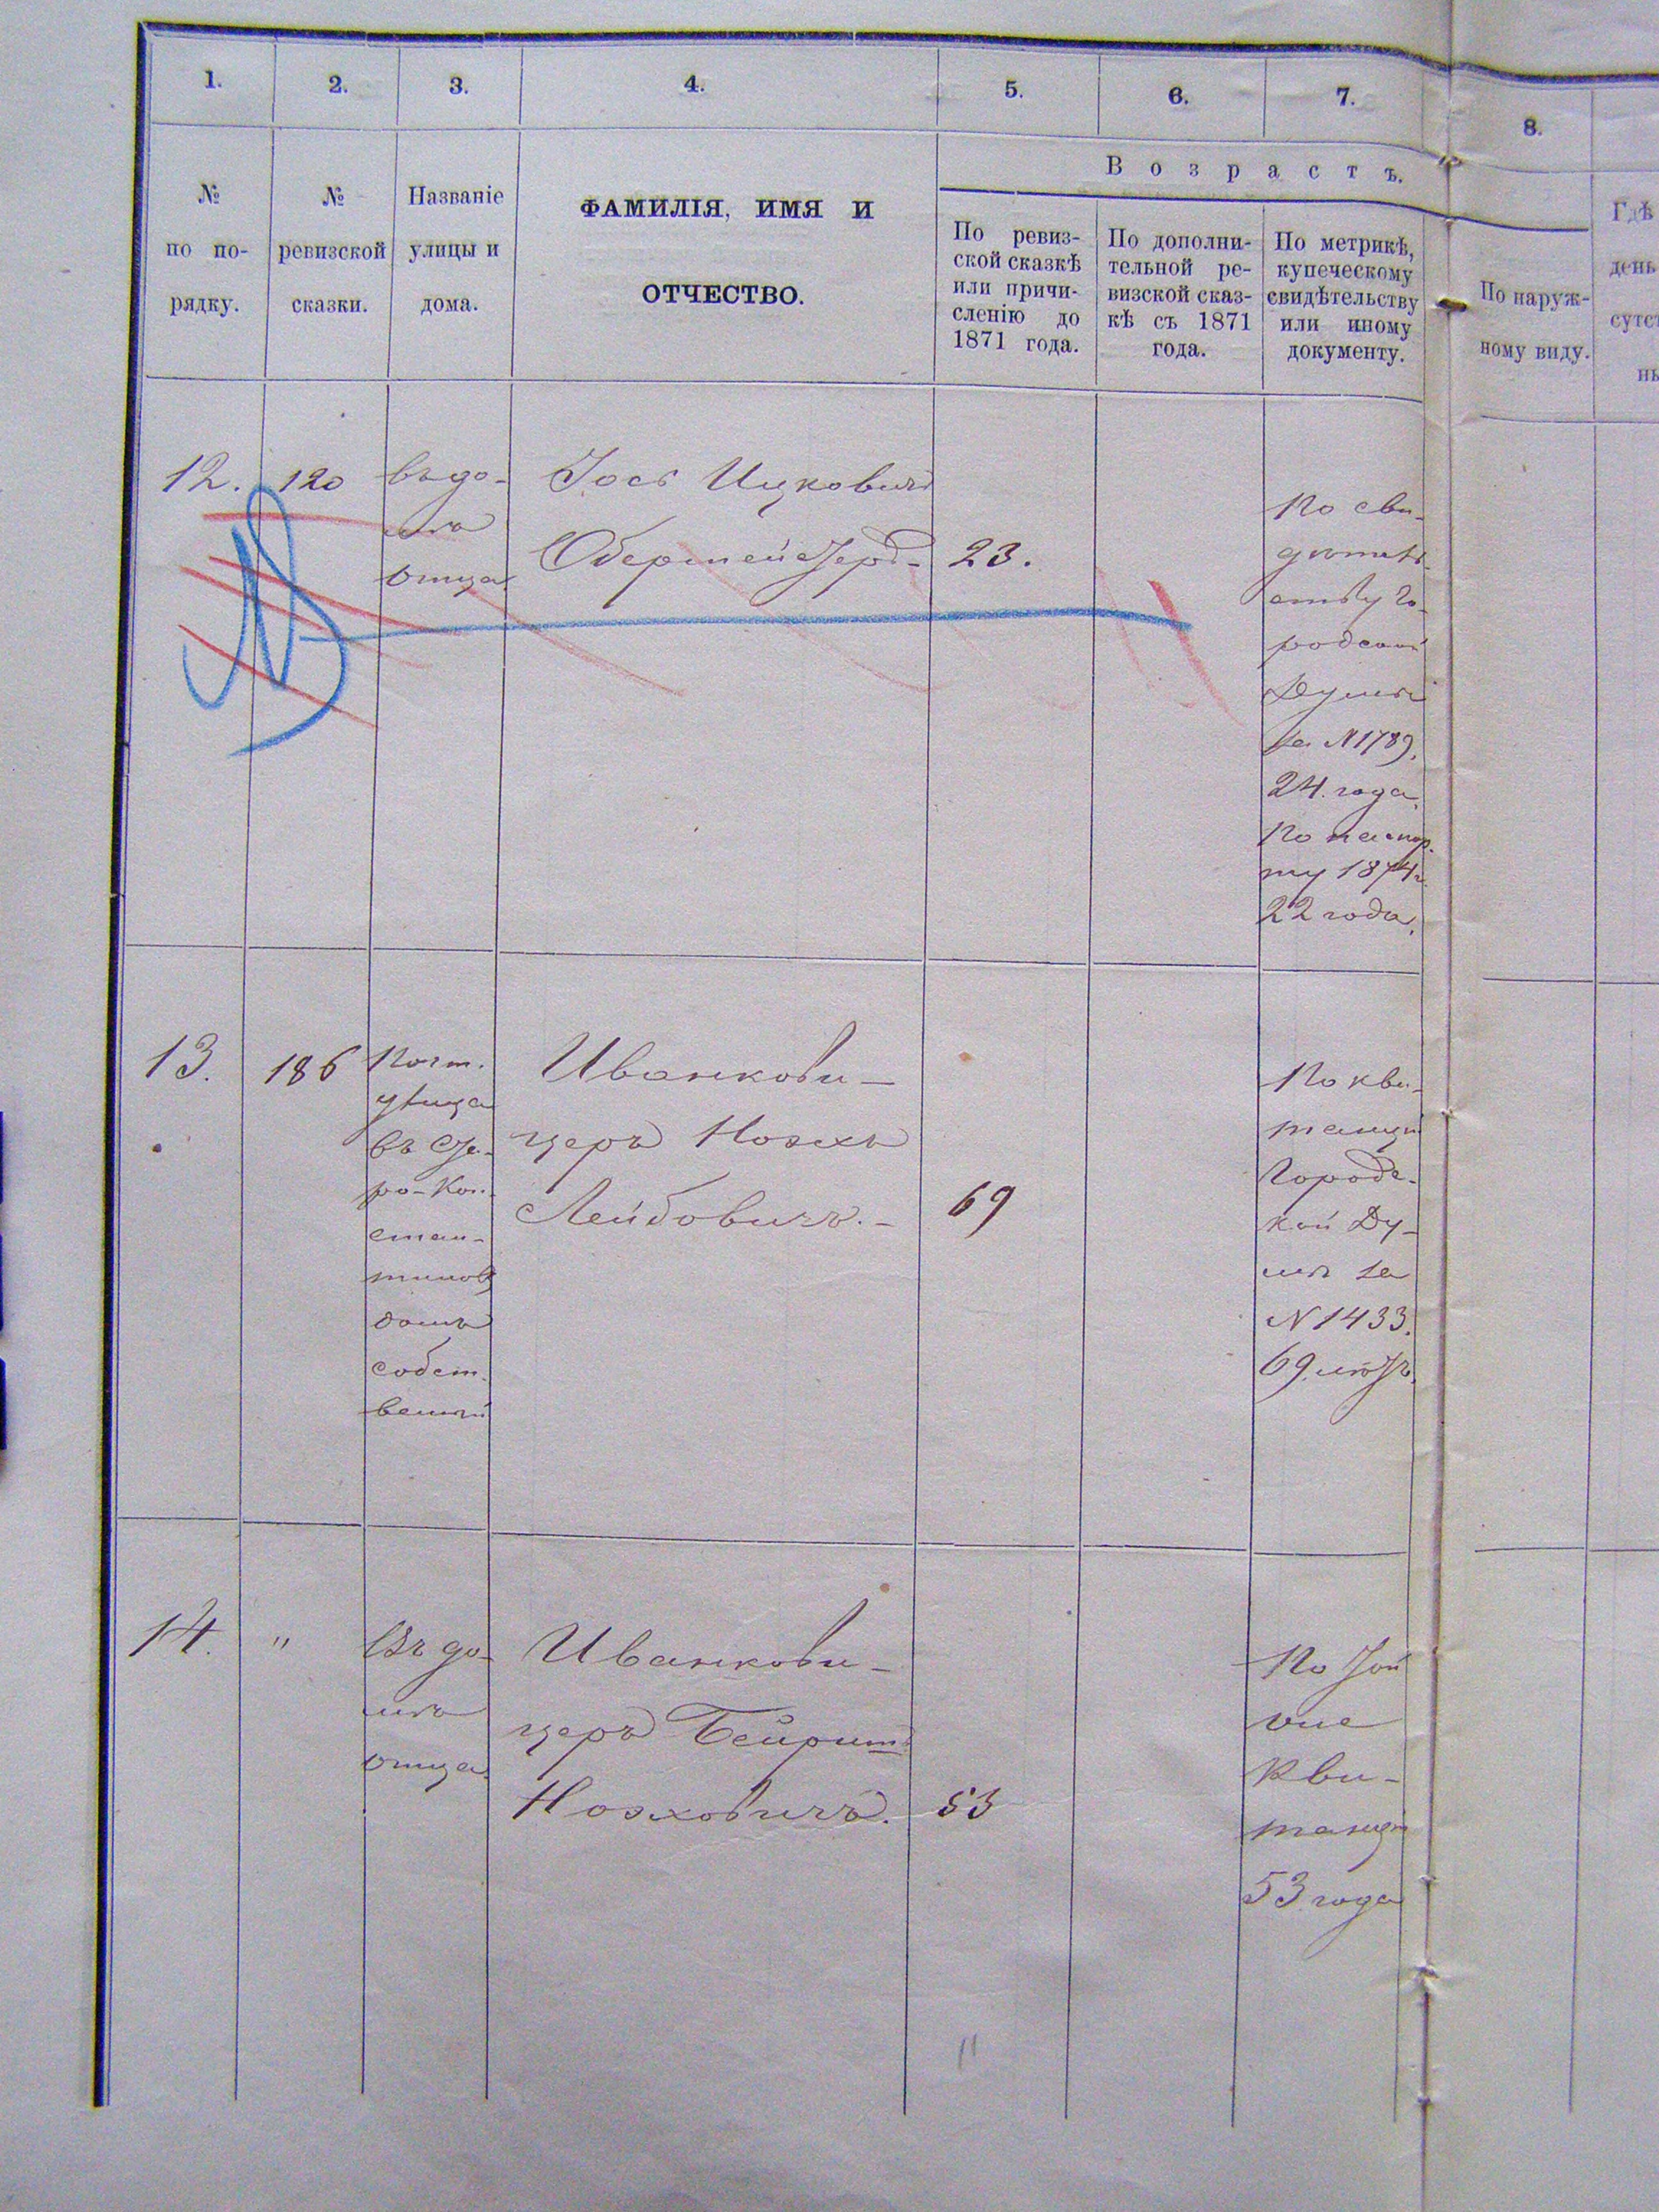 1.
2.
3.
4.
5.
6.
7.
8.
№
по по-
рядку.
№
ревизской
сказки.
Названіе
улицы и
дома.
ФАМИЛІЯ, ИМЯ И
ОТЧЕСТВО.
Возрастъ.
По ревиз-
ской сказкѣ
или причи-
сленію до
1871 года.
По дополни-
тельной ре-
визской сказ-
кѣ съ 1871
года.
По метрикѣ,
купеческому
свидѣтельству
или иному
документу.
По наруж-
ному виду.
Гдѣ
день
сутст
нь
12.
120
въ до-
мѣ
отца
Іось Ицковичъ
23.
По сви-
дѣтель-
ству Го-
родской
Думы
за №1789.
24 года.
По паспор-
ту 1874 г.
22 года.
13.
186
Почт.
улица
въ Ста-
ро-Кон-
стан-
тиновѣ
домъ
собст-
венный
Иванкови-
церъ Ноахъ
Лейбовичъ.-
69
По кви-
танціи
Городс-
кой Ду-
мы за
№1433.
69 лѣтъ.
14.
"
Въ до-
мѣ
отца
Иванкови-
церъ Бейришъ
Ноаховичъ.
53
По той
же
кви-
танціи
53 года
11